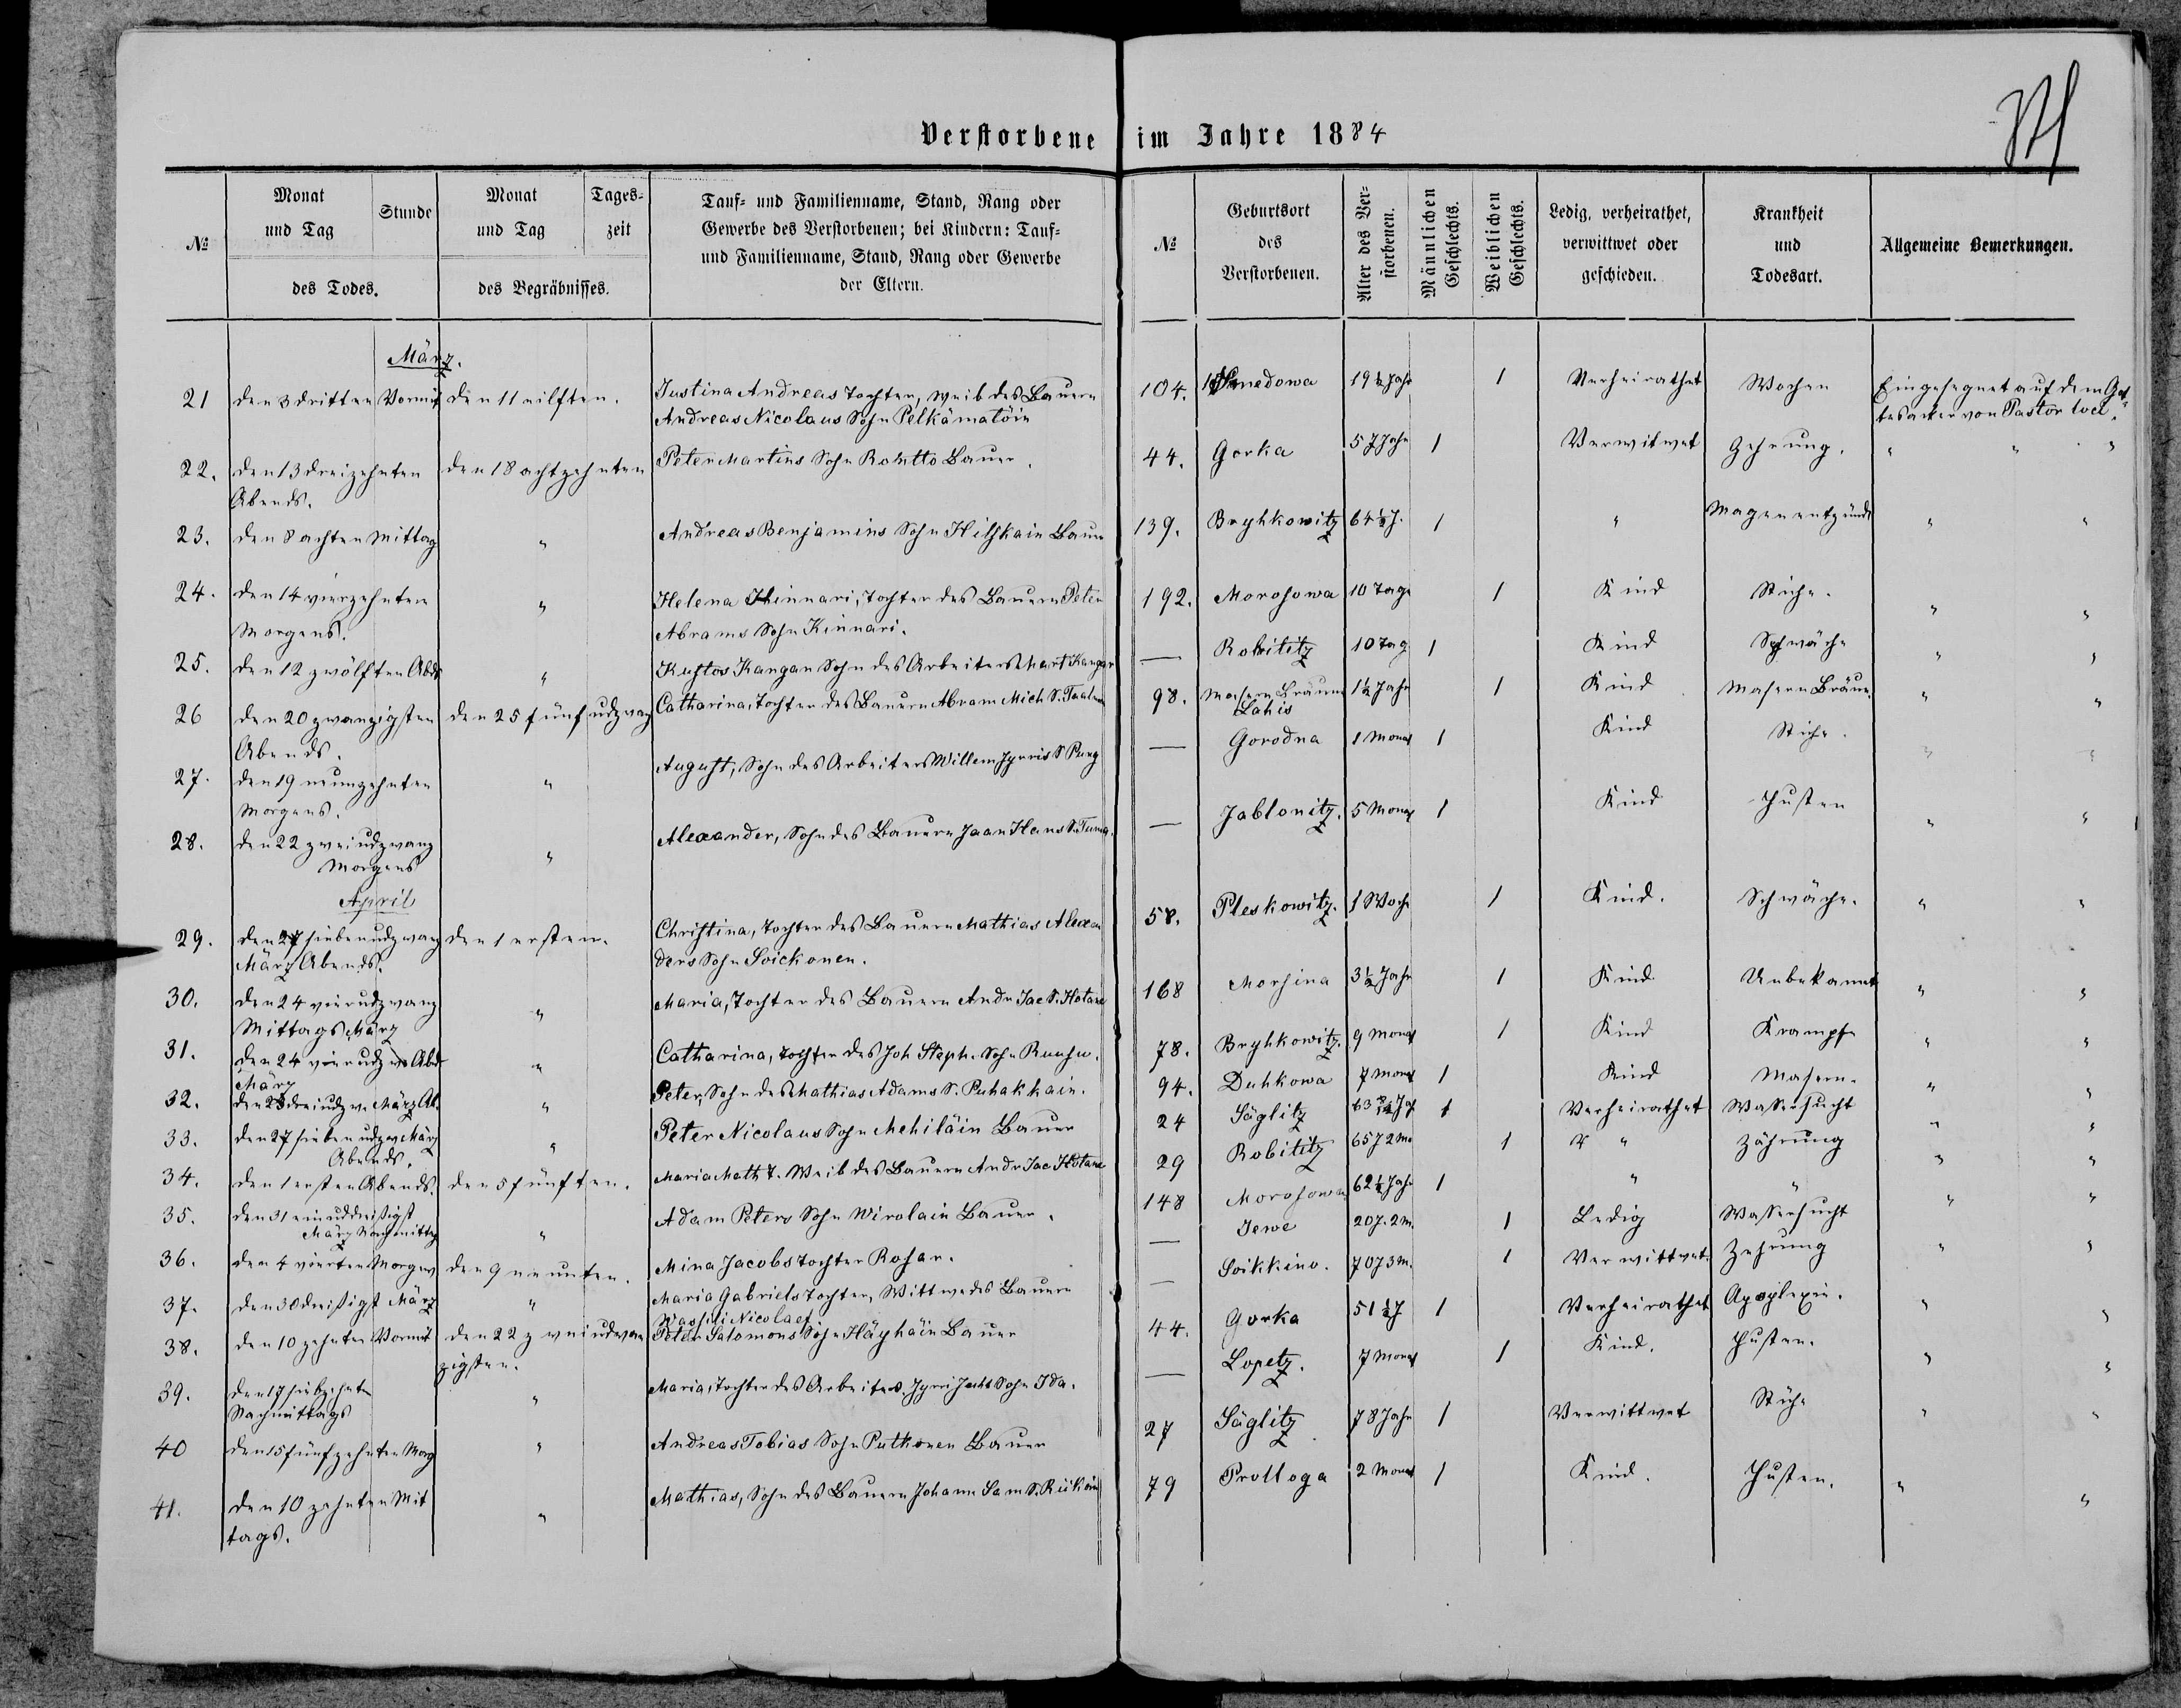 Verstorbene im Jahre 1884
№
Monat und Tag
Stunde
des Todes.
Monat und Tag
Tages-zeit
des Begräbnisses.
Tauf- und Familienname, Stand, Rang oder
Gewerbe des Verstorbenen; bei Kindern: Tauf-
und Familienname, Stand, Rang oder Gewerbe
der Eltern.
№
Geburtsort des Verstorbenen.
Alter des Ver-storbenen.
Männlichen Geschlechts.
Weiblichen Geschlechts.
Ledig, verheirathet, verwittwet oder geschieden.
Krankheit und Todesart.
Allgemeine Bemerkungen.
März.
21 den 3 dritten Vormit den 11 eilften. Justina Andreas Tochter, Weib des Bauern 104. 19½ Jahr 1 Verheirathet Wochen Eingesegnet auf dem Got-
Andreas Nicolaus Sohn Pelkämatöin tesacker von Pastor loci.
22. den 13 dreizehnten den 18 achtzehnten Peter Martins Sohn Bauer. 44. Gorka 57 Jahr 1 Verwitwet Zehrung. " " "
Abends.
23. den 8 achten Mittag " Andreas Benjamins Sohn Hilskain Bauer 139. Bryhkowitz 64½ J. 1 " Magenentzünd " "
24. den 14 vierzehnten " Helena Kinnari, Tochter des Bauern Peter 192. Morosowa 10 Tage 1 Kind Stiche. " "
Morgens. Abrams Sohn Kinnari.
25. den 12 zwölften Abds " Kustos Kangan Sohn des Arbeiters Mart Kangar — Robititz 10 Tag 1 Kind Schwäche " "
26 den 20 zwanzigsten den 25 fünfudzwanz Catharina, Tochter des Bauern Abram Mich S. 98. Masern Bräune 1½ Jahr 1 Kind Masern Bräun. " "
Abends. Lahis
27. den 19 neunzehnten " August, Sohn des Arbeiters Willem Jyrris S Purg — Gorodna 1 Monat 1 Kind Stiche. " "
Morgens.
28. den 22 zweiudzwanz " Alexander, Sohn des Bauern Jaan Hans S. — Jablonitz. 5 Monat 1 Kind Husten " "
Morgens
April
29. den 27 siebenudzwanz den 1 ersten. Christina, Tochter des Bauern Mathias Alexan 58. Pleskowitz. 1 Woche 1 Kind. Schwäche. " "
März Abends. ders Sohn Soickonen.
30. den 24 vierudzwanz " Maria, Tochter des Bauern Andr Jac S. Hotane 168 Morsina 3½ Jahr 1 Kind Unbekannt " "
Mittags März
31. den 24 vierudzw Abd " Catharina, Tochter des Joh Steph. Sohn 78. Bryhkowitz. 9 Monat 1 Kind Krampfe " "
März
32. den 23 dreiudzw. März Ab. " Peter, Sohn des Mathias Adams S. Puhakkain. 94. Duhkowa 7 Monat 1 Kind Masern. " "
33. den 27 siebenudzw März " Peter Nicolaus Sohn Mehiläin Bauer 24 Säglitz 1 Verheirathet Wassersucht " "
Abends.
34. den 1 ersten Abends. den 5 fünften. Maria Math T. Weib des Bauern Andr Jac Hotane 29 Robititz 65 J 2 Mo 1 " Zährung " "
35. den 31 einuddreißigst " Adam Peters Sohn Wirolain Bauer. 148 Morosowa 62½ Jahr 1 " " " "
März Nachmittag
36. den 4 vierten Morgens den 9 neunten. Mina Jacobs Tochter Rosar. — Jewe 20 J. 2 M. 1 Ledig Wassersucht
37. den 30 dreißigst März " Maria Gabriels Tochter, Wittwe des Bauern — Soikkino. 70 J 3 M. 1 Verwittwet. Zehrung " "
Wassili Nicolaef
38. den 10 zehnten Vormit den 22 zweiudzwan Peter Salomons Sohn Häyhäin Bauer 44. Gorka 51½ J 1 Verheirathet Apoplexie. " "
zigsten.
39. den 17 siebzehnten " Maria, Tochter des Arbeiters. Jyrri Sohn Ida. — Lopetz. 7 Monat 1 Kind. Husten. " "
Nachmittags
40 den 15 fünfzehnten Morg " Andreas Tobias Sohn Puthonen Bauer 27 Säglitz 78 Jahr 1 Verwittwet Stiche " "
41. den 10 zehnten Mit " Mathias, Sohn des Bauern Johann Sam S. 79 Prolloga 2 Monat 1 Kind. Husten. " "
tags.